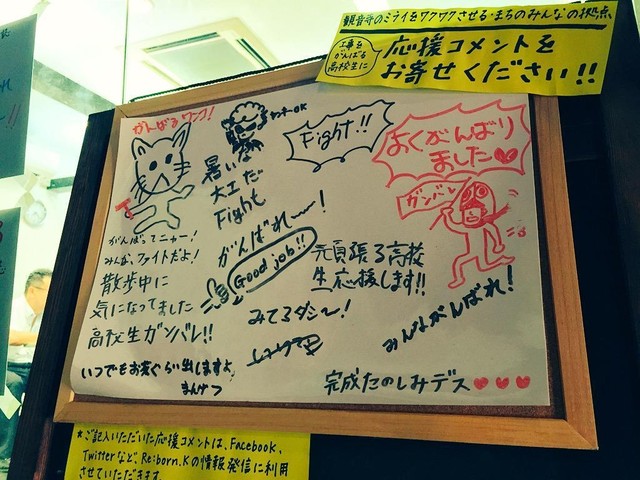 観音寺のミライをワクワクさせる・まちのみんなの拠点
工事を
がんばる
高校生に
応援コメントを
お寄せください!!
がんばるワン!
がんばってニャー!
みんな、ファイトだよ!
散歩中に
気になってました
高校生ガンバレ!!
いつでもお茶ぐらい出しますよ
まんげつ
暑いな
大工だ
Fight
がんばれ〜!
Good job!!
みてるダシ〜!
Fight!!
元気頑張る高校
生応援します!!
よくがんばり
ました
ガンバレ
みんながんばれ!
完成たのしみデス
★ご記入いただいた応援コメントは、Facebook、
Twitterなど、Re:born.Kの情報発信に利用
させていただきます。